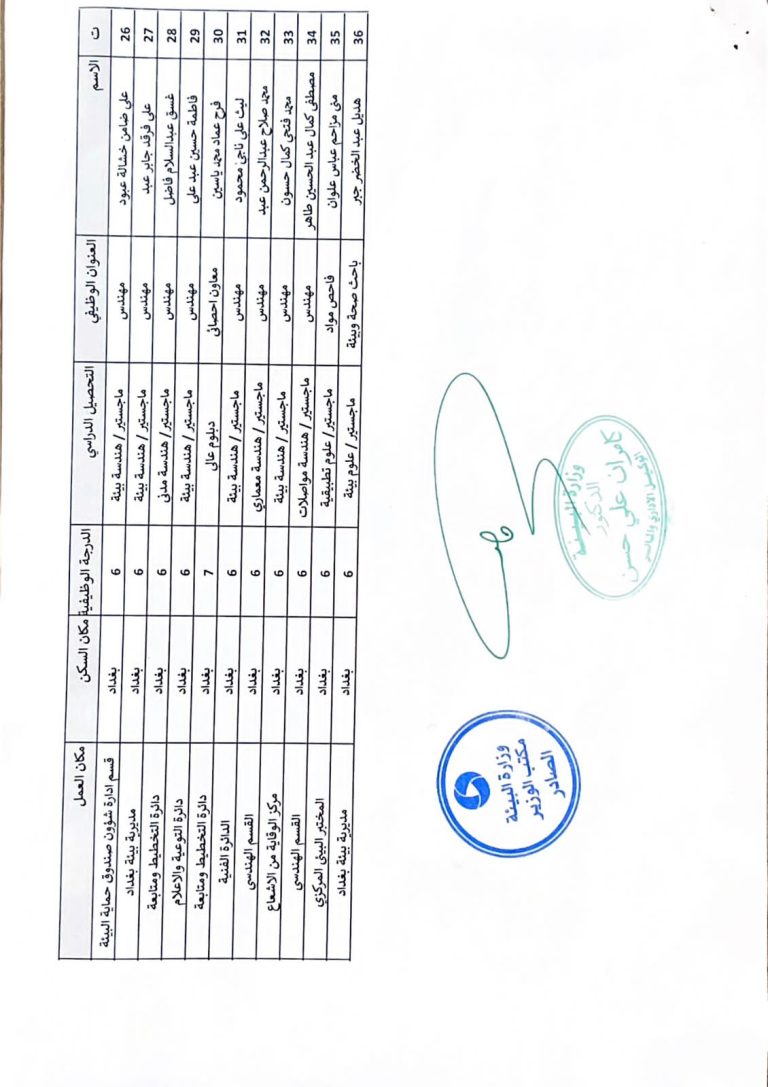 ت الاسم العنوان الوظيفي التحصيل الدراسي الدرجة الوظيفية مكان السكن مكان العمل
26 علي ضامن خشالة عبود مهندس ماجستير / هندسة بيئة 6 بغداد قسم ادارة شؤون صندوق حماية البيئة
27 علي فرقد جابر عبد مهندس ماجستير / هندسة بيئة 6 بغداد مديرية بيئة بغداد
28 غسق عبدالسلام فاضل مهندس ماجستير / هندسة مدني 6 بغداد دائرة التخطيط ومتابعة
29 فاطمة حسين عبد علي مهندس ماجستير / هندسة بيئة 6 بغداد دائرة التوعية والاعلام
30 فرح عماد محمد ياسين معاون احصائي دبلوم عالي 7 بغداد دائرة التخطيط ومتابعة
31 ليث علي ناجي محمود مهندس ماجستير / هندسة بيئة 6 بغداد الدائرة الفنية
32 محمد صلاح عبدالرحمن عبد مهندس ماجستير / هندسة معماري 6 بغداد القسم الهندسي
33 محمد فتحي كمال حسون مهندس ماجستير / هندسة بيئة 6 بغداد مركز الوقاية من الاشعاع
34 مصطفى كمال عبد الحسين طاهر مهندس ماجستير / هندسة مواصلات 6 بغداد القسم الهندسي
35 منى مزاحم عباس علوان فاحص مواد ماجستير / علوم تطبيقية 6 بغداد المختبر البيئي المركزي
36 هديل عبد الخضر جبر باحث صحة وبيئة ماجستير / علوم بيئة 6 بغداد مديرية بيئة بغداد
وزارة البيئة
الدكتور
كامران علي حسن
الوكيل الاداري والمالي
وزارة البيئة
مكتب الوزير
الصادر